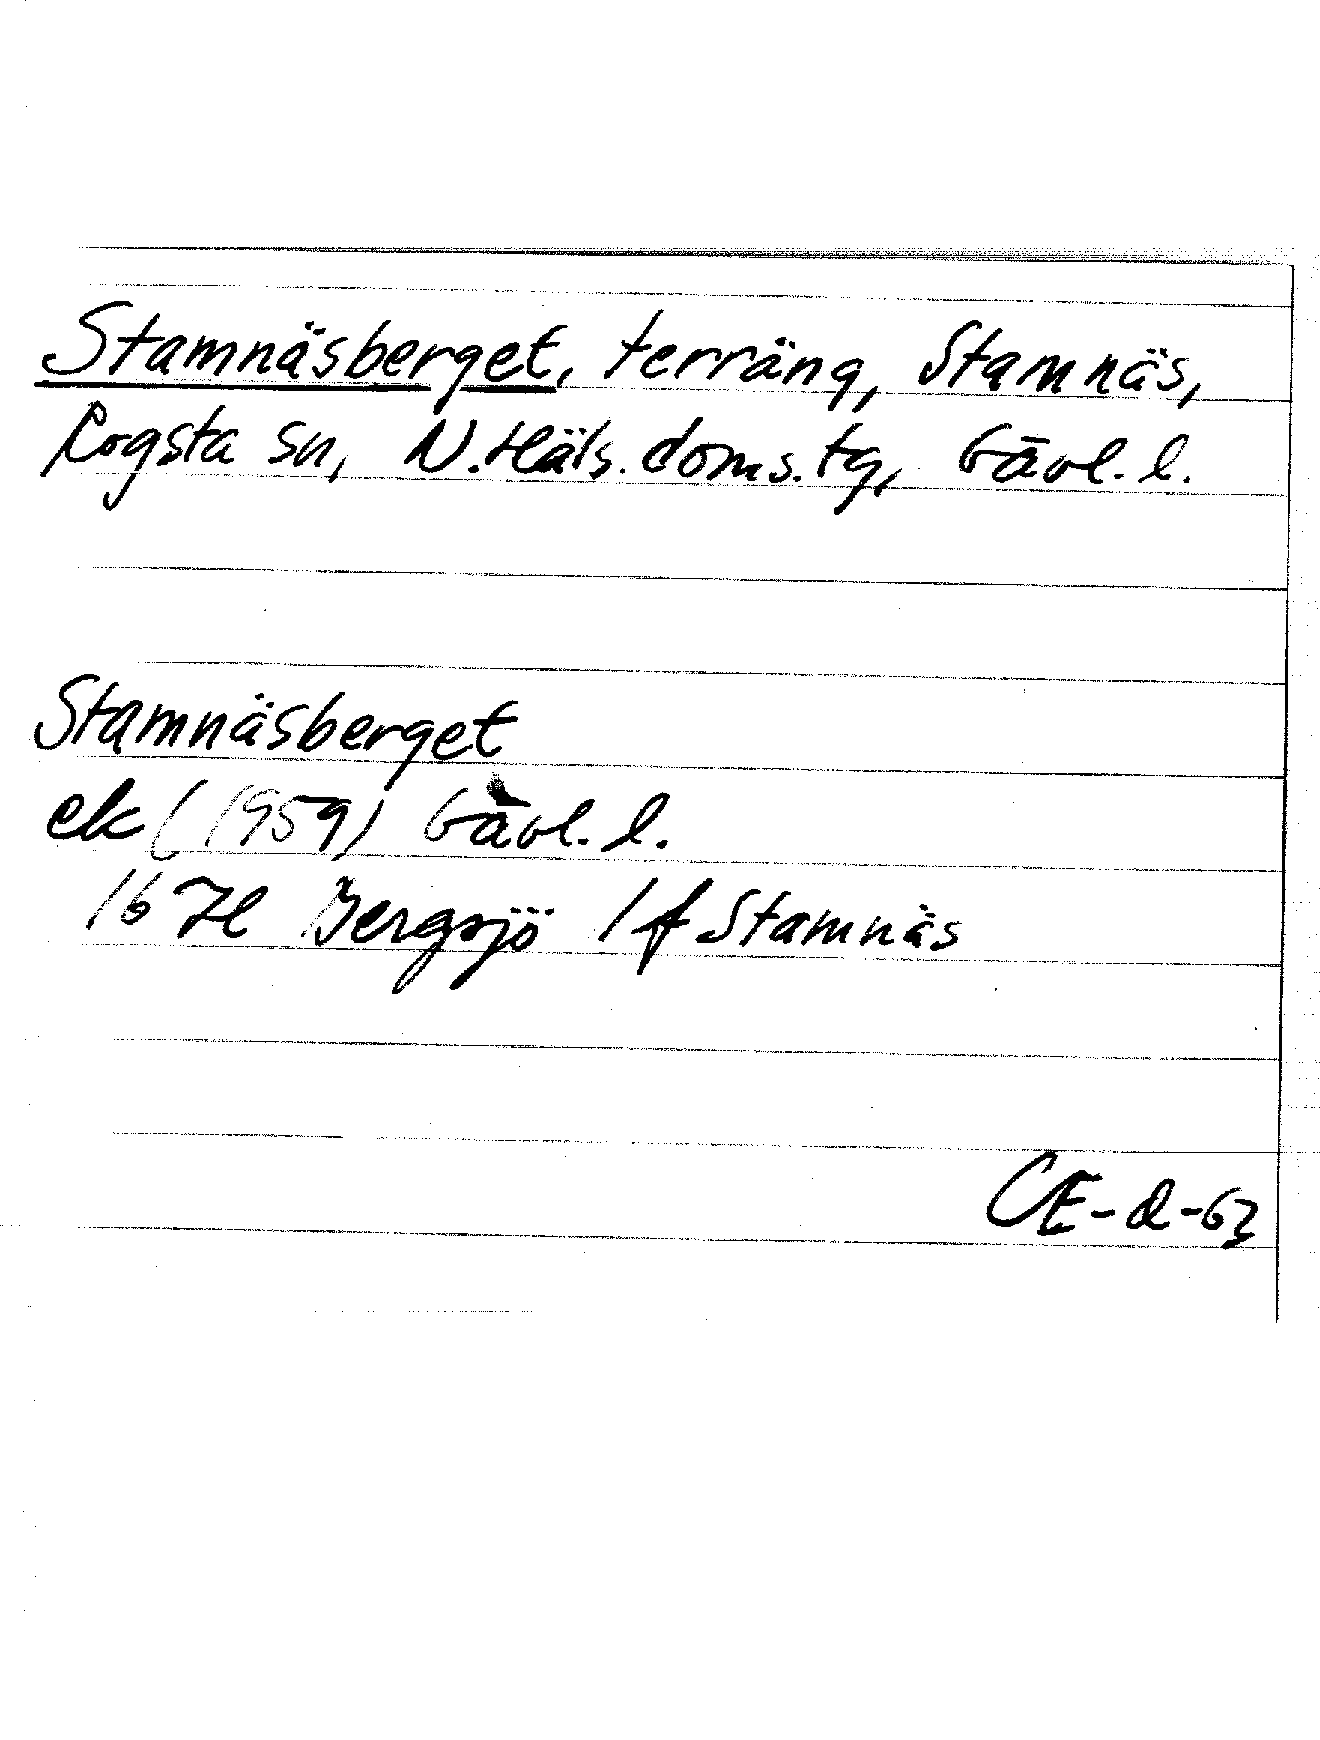 Stamnäsberget, terräng, Stamnäs,
Rogsta sn, N. Häls. doms. tg, Gävl. l.
Stamnäsberget
ek (1959) Gävl. l.
16 H Bergsjö 1 f Stamnäs
CE-d-63